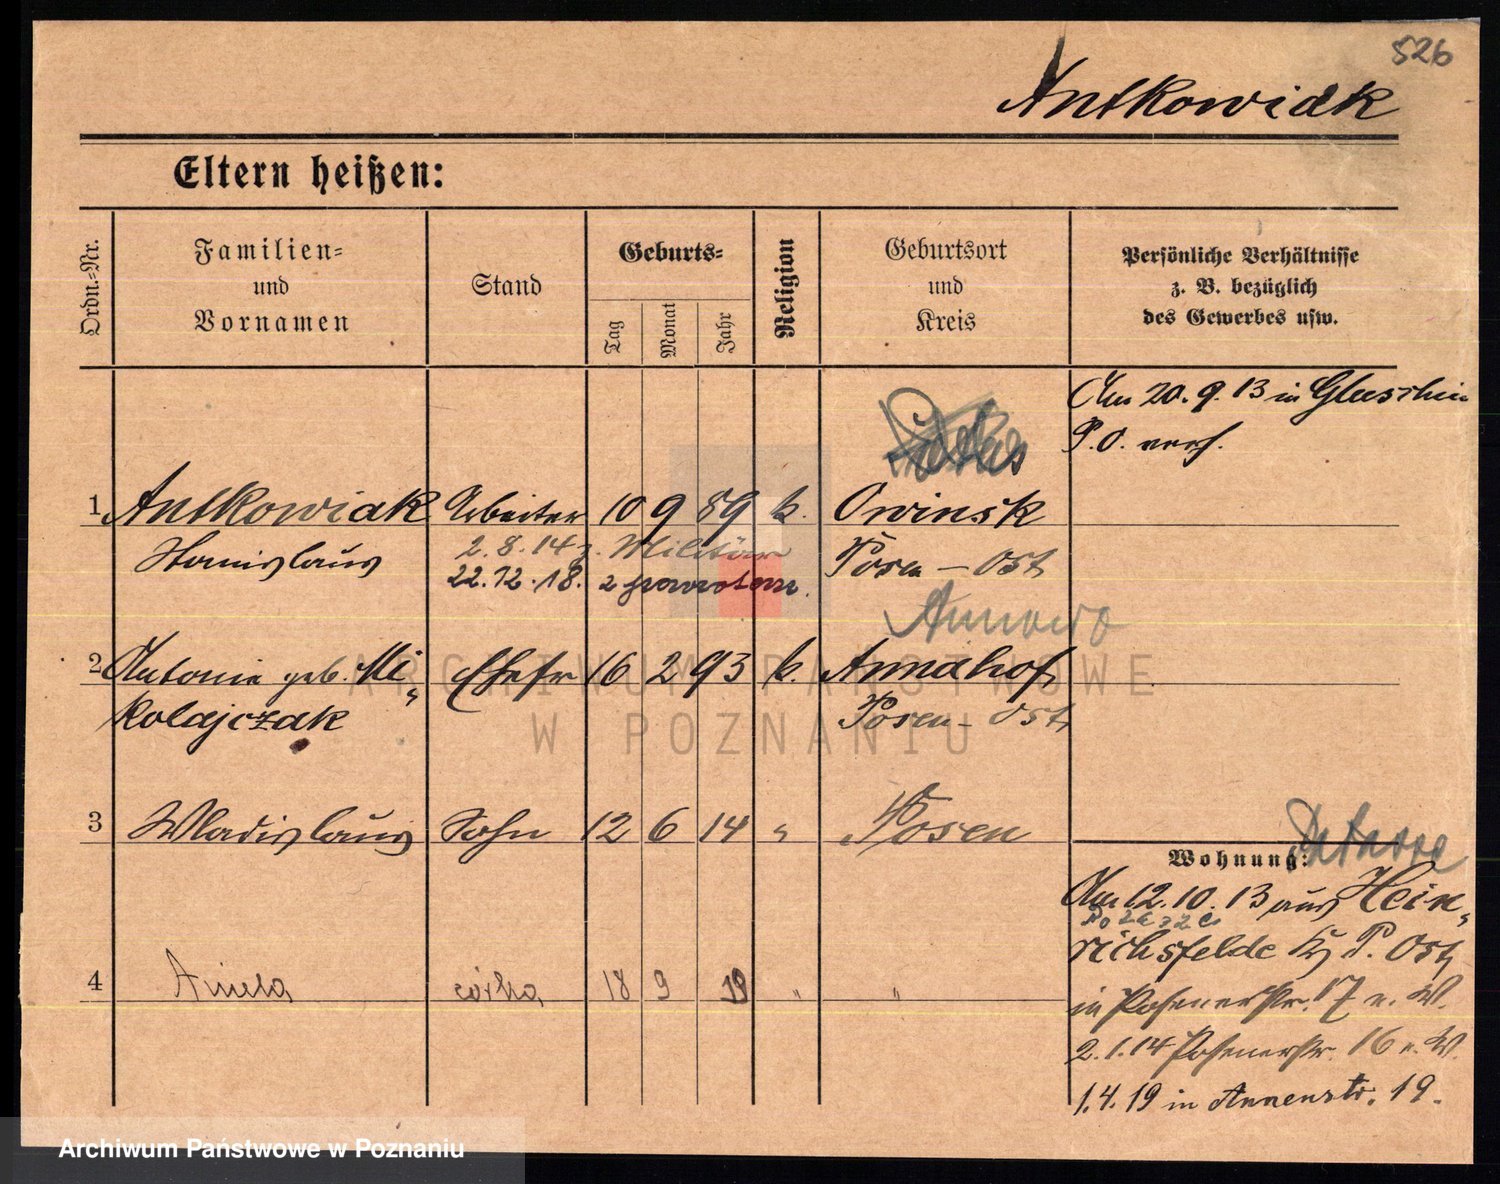 526
Antkowiak
Eltern heißen:
Ordn.-Nr.
Familien-
und
Vornamen
Stand
Geburts-
Tag
Monat
Jahr
Religion
Geburtsort
und
Kreis
Persönliche Verhältnisse
z. B. bezüglich
des Gewerbes usw.
Am 20. 9. 13 in Gluschin
P. O. verh.
1 Antkowiak Arbeiter 10 9 89 k. Owinsk
Stanislaus 2. 8. 14 z. Militär Posen - Ost
22. 12. 18. z powrotem.
Annowo
2 Antonie geb. Mi- Ehefr 16 2 93 k. Annahof
kolajczak Posen - Ost
3 Wladislaus Sohn 12 6 14 " Posen
Wohnung:
Am 12. 10. 13 aus Hein-
richsfelde P. Ost
4 Aniela córka 18 9 19 " "
in Posenerstr. 17 n. W.
2. 1. 14 Posenerstr. 16 n. W.
1. 4. 19 in Annenstr. 19.
ARCHIWUM PAŃSTWOWE
W POZNANIU
Archiwum Państwowe w Poznaniu